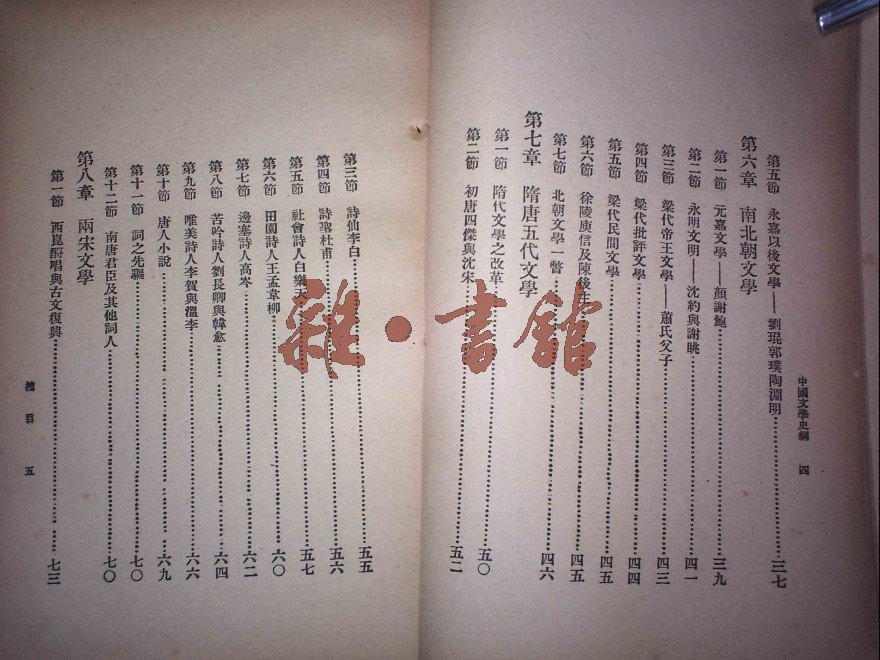 中國文學史綱　四
第五節　永嘉以後文學——劉琨郭璞陶淵明……三七
第六章　南北朝文學
第一節　元嘉文學——顏謝鮑……三九
第二節　永明文明——沈約與謝眺……四一
第三節　梁代帝王文學——蕭氏父子……四三
第四節　梁代批評文學……四四
第五節　梁代民間文學……四五
第六節　徐陵庾信及陳後主……四五
第七節　北朝文學一瞥……四六
第七章　隋唐五代文學
第一節　隋代文學之改革……五〇
第二節　初唐四傑與沈宋……五二
第三節　詩仙李白……五五
第四節　詩聖杜甫……五六
第五節　社會詩人白樂天……五七
第六節　田園詩人王孟韋柳……六〇
第七節　邊塞詩人高岑……六二
第八節　苦吟詩人劉長卿與韓愈……六四
第九節　唯美詩人李賀與溫李……六六
第十節　唐人小說……六九
第十一節　詞之先驅……七〇
第十二節　南唐君臣及其他詞人……七〇
第八章　兩宋文學
第一節　西崑酬唱與古文復興……七三
總目　五
雜·書館